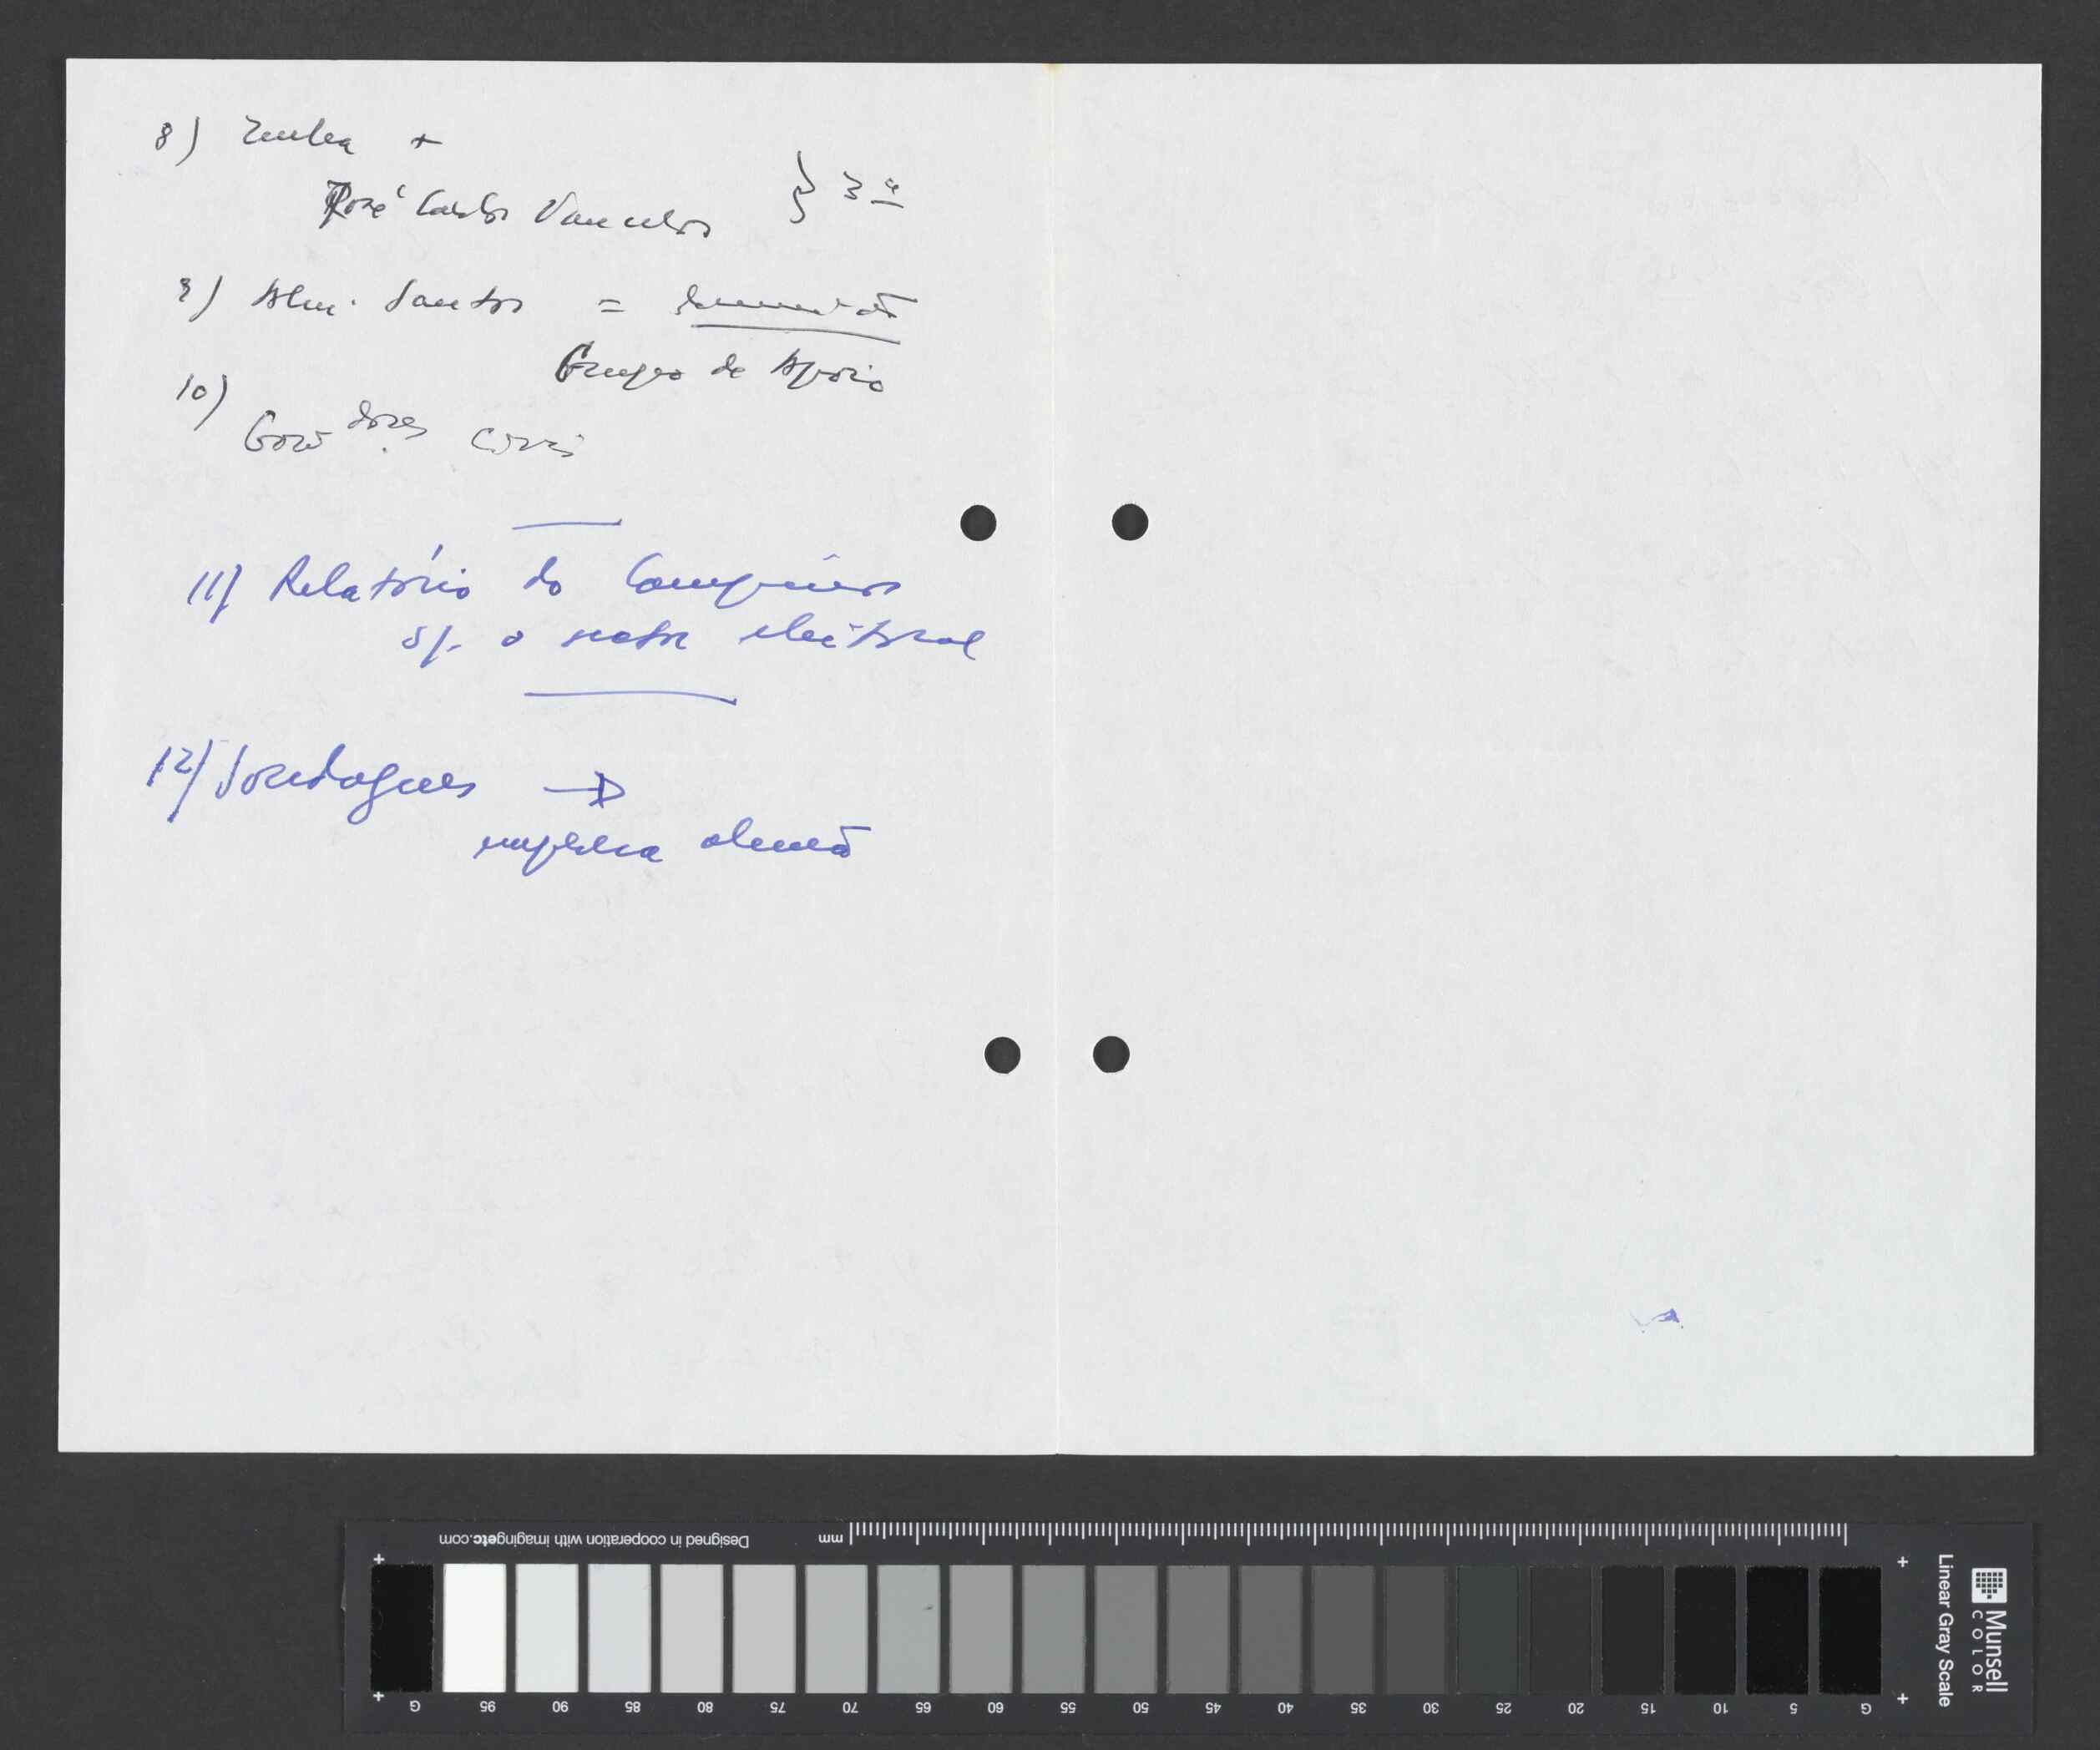 8) Zulea +
José Carlos Vasconcelos } 3ª
9) Alm. Santos =
Grupo de Apoio
10)
Gov dores civis
11) Relatório do Campinos
s/. o sector eleitoral
12) Sondagens →
empresa alemã
Designed in cooperation with imagingetc.com
mm
G 95 90 85 80 75 70 65 60 55 50 45 40 35 30 25 20 15 10 5 G
Munsell
COLOR
Linear Gray Scale